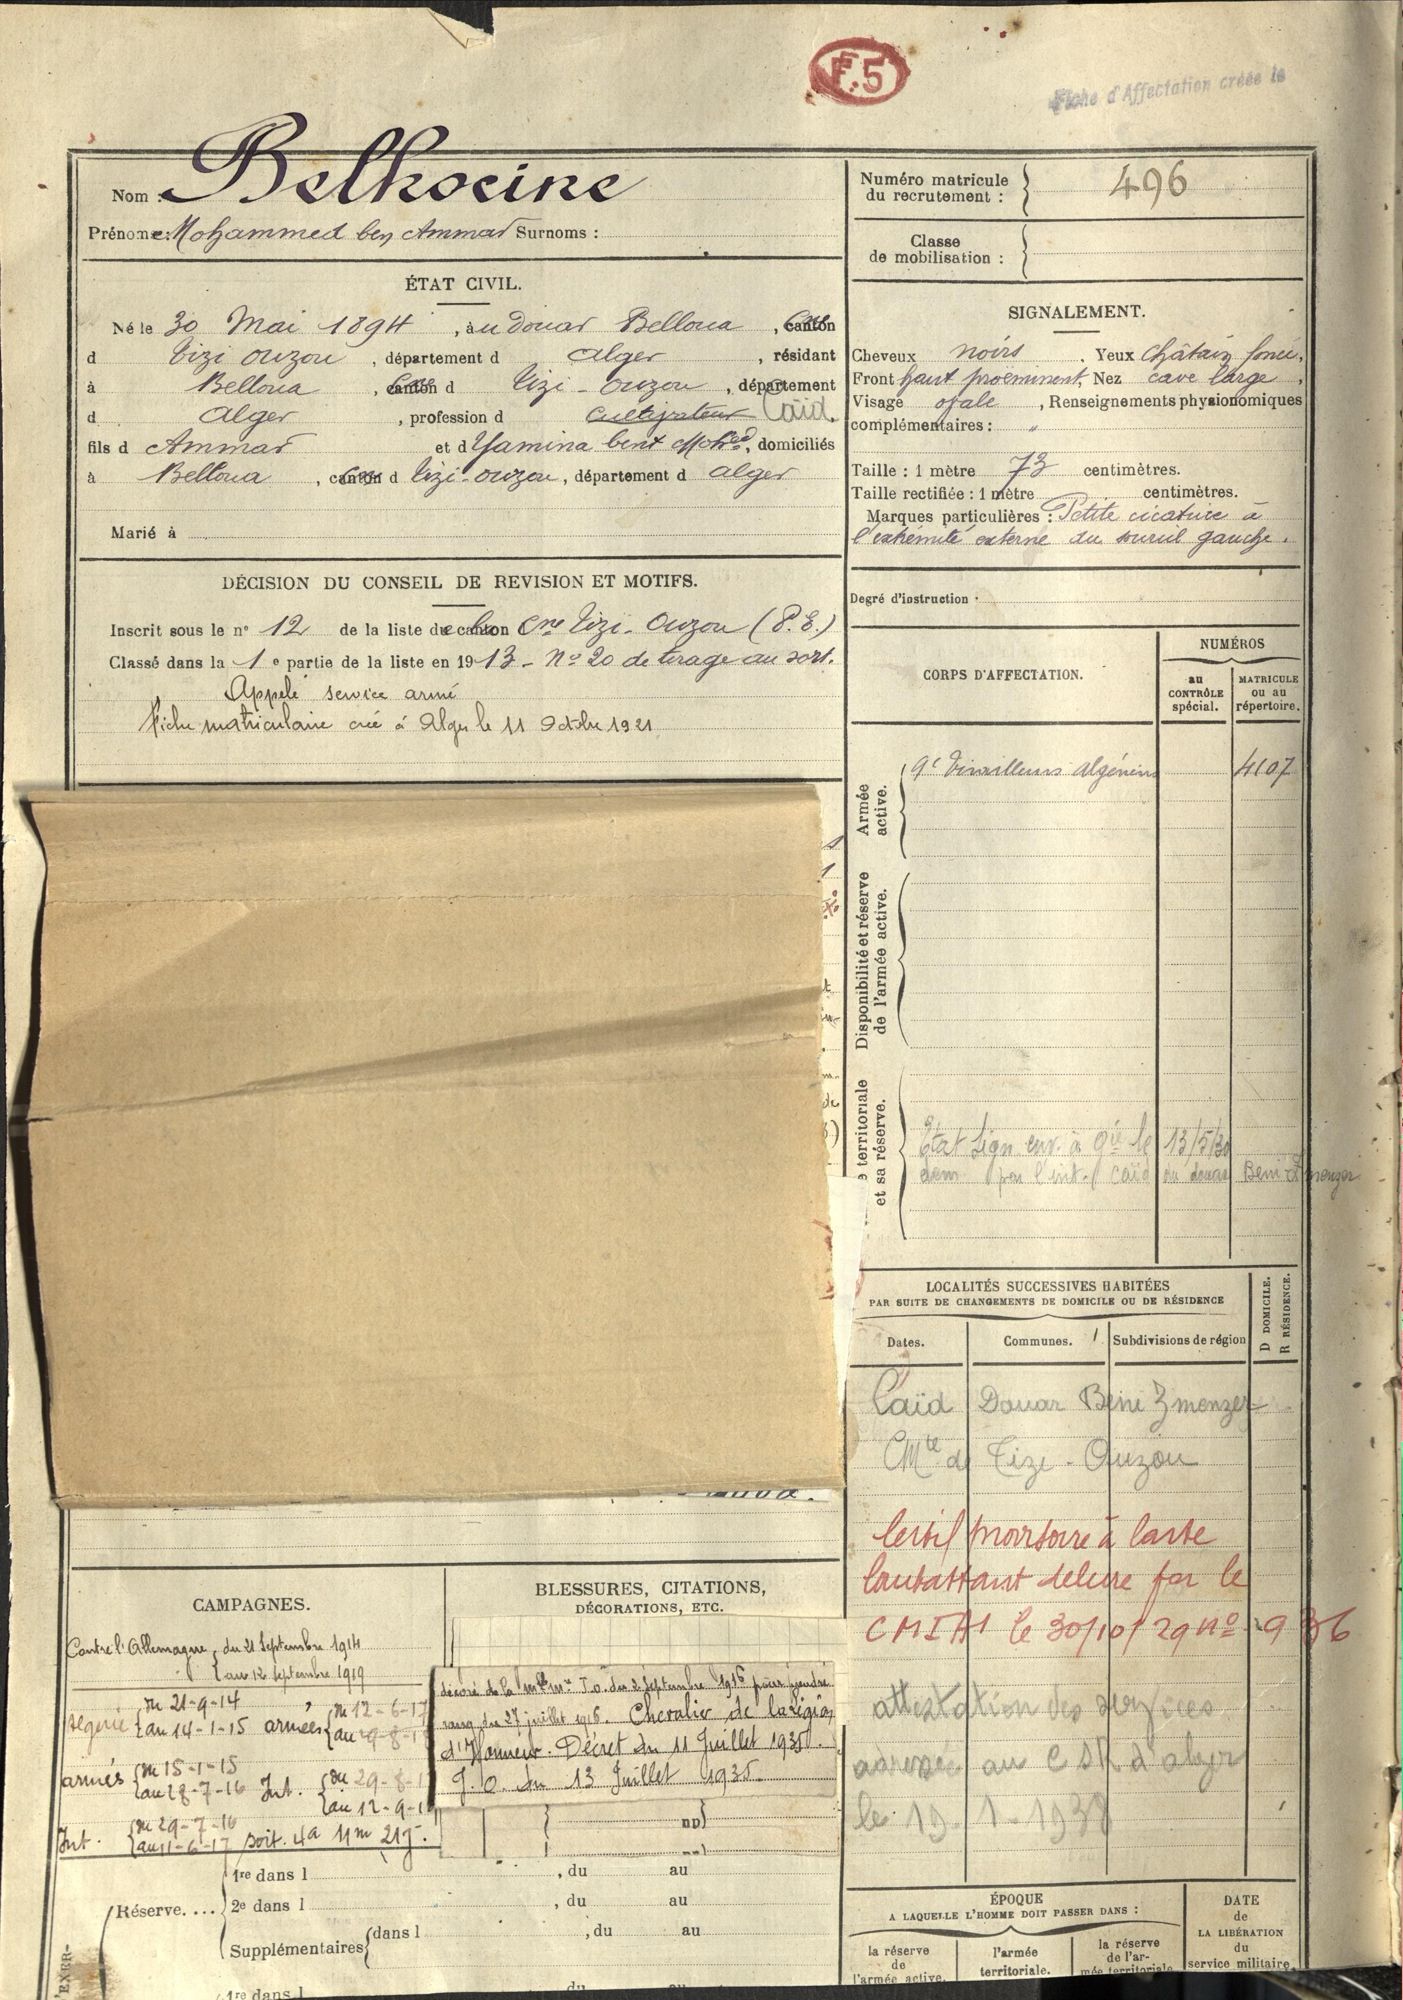 F.5
Fiche d'Affectation créée le
Nom : Belhocine
Prénoms : Mohammed ben Ammar Surnoms :
Numéro matricule du recrutement : 496
Classe de mobilisation :
ÉTAT CIVIL.
Né le 30 Mai 1894, à u douar Belloua, canton Cne
d Tizi Ouzou, département d Alger, résidant
à Belloua, canton Cne d Tizi-Ouzou, département
d Alger, profession d cultivateur Caïd
fils d Ammar et d Yamina bent Mohed, domiciliés
à Belloua, canton Cne d Tizi-Ouzou, département d Alger
Marié à
SIGNALEMENT.
Cheveux noirs. Yeux châtain foncé,
Front haut proëminent, Nez cave large,
Visage ovale, Renseignements physionomiques
complémentaires : "
Taille : 1 mètre 73 centimètres.
Taille rectifiée : 1 mètre centimètres.
Marques particulières : Petite cicatrice à
l'extrémité externe du sourcil gauche.
Degré d'instruction
DÉCISION DU CONSEIL DE REVISION ET MOTIFS.
Inscrit sous le n° 12 de la liste de la canton Cne Tizi-Ouzou (P.E.)
Classé dans la 1e partie de la liste en 1913 - No 20 de tirage au sort.
Appelé service armé
Fiche matriculaire créé à Alger le 11 Octobre 1921
CORPS D'AFFECTATION.
NUMÉROS
au CONTRÔLE spécial.
MATRICULE ou au répertoire.
Armée active.
9e Tirailleurs Algériens 4107
Disponibilité et réserve de l'armée active.
territoriale et sa réserve.
Etat Sign env. à Gie le 13/5/30
Caïd du douar Beni Zmenzer
LOCALITÉS SUCCESSIVES HABITÉES
PAR SUITE DE CHANGEMENTS DE DOMICILE OU DE RÉSIDENCE
Dates. Communes. Subdivisions de région
D DOMICILE.
R RÉSIDENCE.
Caïd Douar Beni Zmenzer
CMte de Tizi-Ouzou
Certif provisoire à carte
Combattant délivré par le
le 30/10/29 No 936
attestation des services
adressée au CSR d'alger
le 19-1-1938
CAMPAGNES.
Contre l'Allemagne, du 21 Septembre 1914
au 12 septembre 1919
Algérie du 21-9-14 au 14-1-15
armées du 12-6-17
armées du 15-1-15 au 28-7-16
Int. du 29-8-1
au 12-9-1
Int. du 29-7-16 au 11-6-17
soit 4a 11m 21j.
BLESSURES, CITATIONS,
DÉCORATIONS, ETC.
décoré de la J.O. du 2 Septembre 1916 pour prendre
rang du 27 juillet 1916. Chevalier de la Légion
d'Honneur. Décret du 11 Juillet 1935.
J.O. du 13 Juillet 1935.
Réserve....
1re dans l , du au
2e dans l , du au
Supplémentaires dans l , du au
1re dans l du au
ÉPOQUE
A LAQUELLE L'HOMME DOIT PASSER DANS :
la réserve de l'armée active.
l'armée territoriale.
la réserve de l'armée territoriale
DATE de LA LIBÉRATION du service militaire.